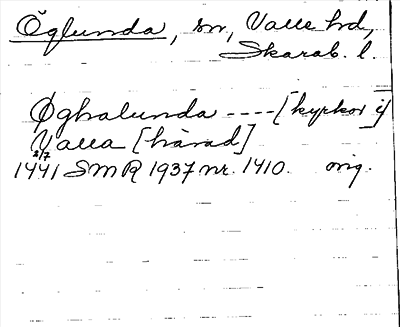 Öglunda, sn, Valle hd,
Skarab. l.
Øghalunda ---- [kyrkor i]
Valla [härad]
2/7
1441 SMR 1937 nr. 1410. orig.